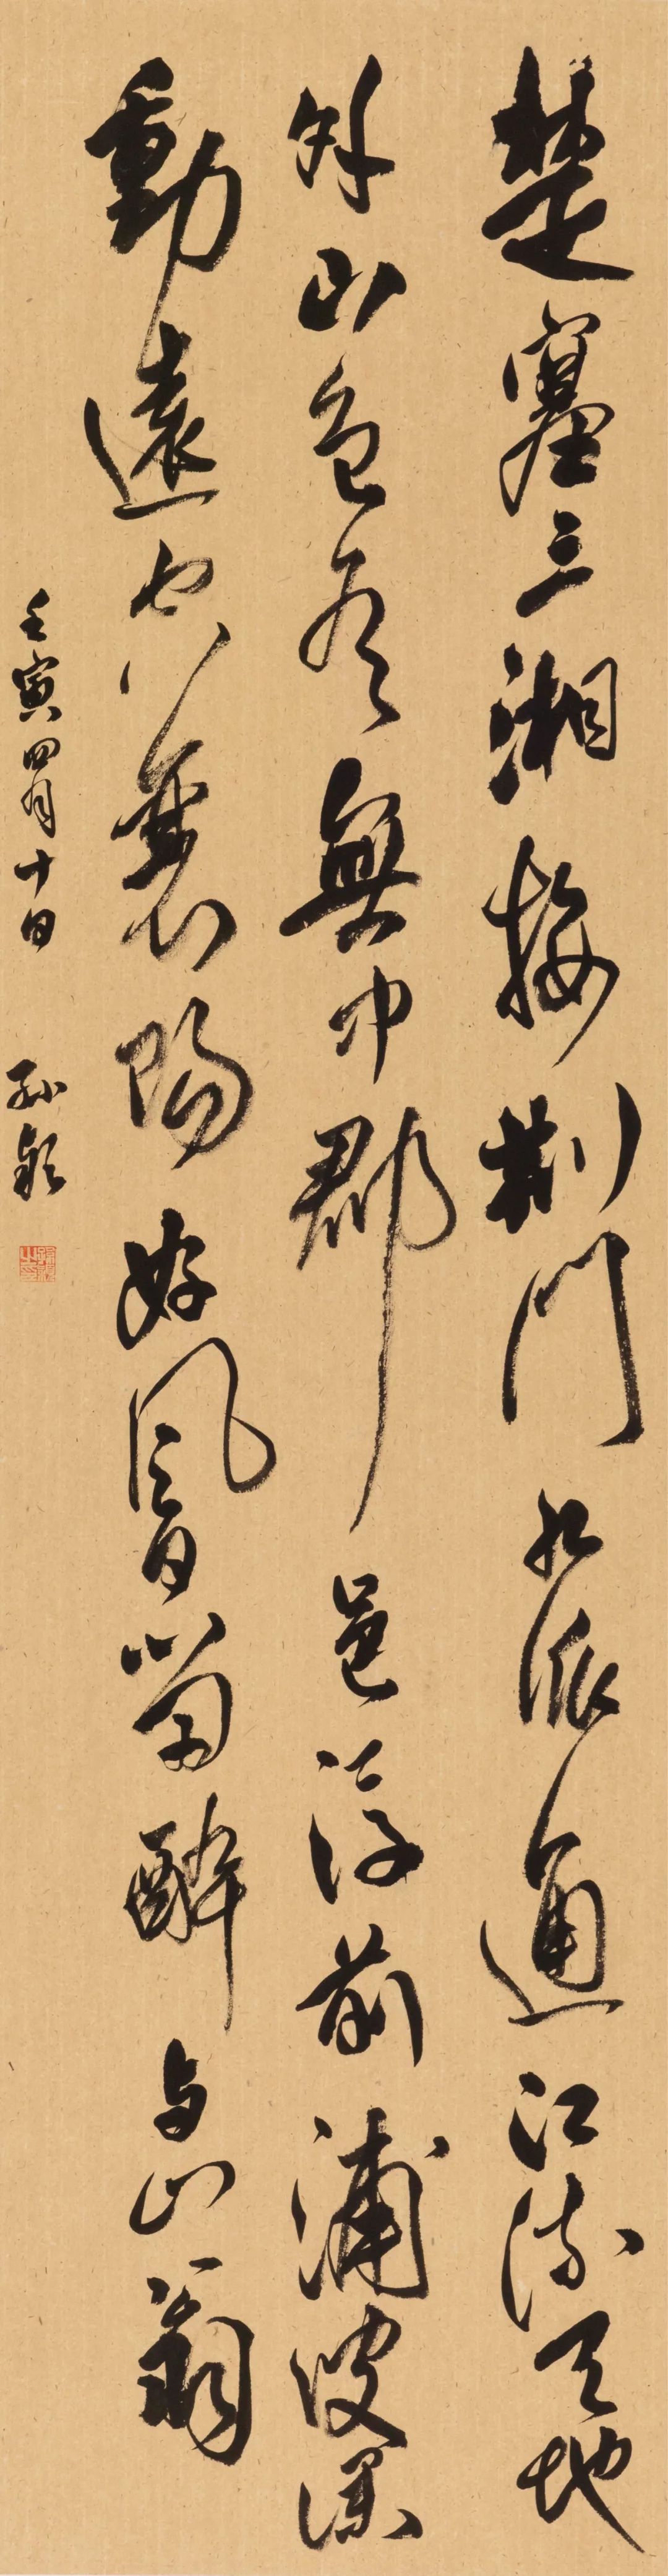 楚塞三湘接荊門九派通江流天地
外山色有無中郡邑浮前浦波瀾
動遠空襄陽好風日留醉与山翁
壬寅四月十日 孙